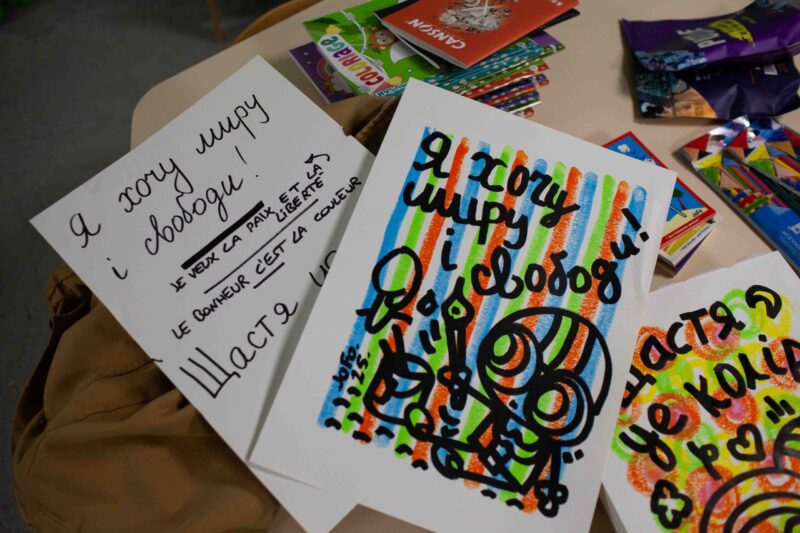 Я хочу миру
і свободи!
JE VEUX LA PAIX ET LA
LIBERTÉ
LE BONHEUR C'EST LA COULEUR
Щастя
Я хочу
миру
і
свободи!
JOFO.
25.
Щастя
це колір
COLORIAGE
CANSON